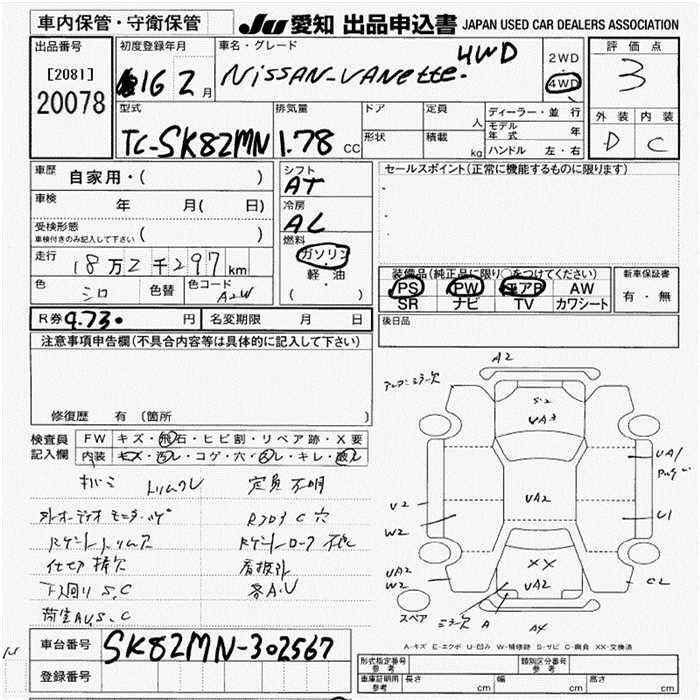 車内保管・守衛保管
JU 愛知 出品申込書 JAPAN USED CAR DEALERS ASSOCIATION
出品番号
[2081]
20078
初度登録年月
16 2月
車名・グレード
NiSSAN-VANette. 4WD
2WD
・
4WD
評価点
3
外装 内装
D C
型式
TC-SK82MN
排気量
1.78 CC
ドア
形状
定員 人
積載 kg
ディーラー・並行
モデル年式 年
ハンドル 左・右
車歴 自家用・( )
車検 年 月( 日)
受検形態
車検付きのみ記入して下さい ( )
走行 18万2千297km
色 シロ 色替 色コード A2W
シフト
AT
冷房
AC
燃料
ガソリン
軽・油
( )
セールスポイント(正常に機能するものに限ります)
装備品(純正品に限り○をつけてください)
PS PW エアB AW
SR ナビ TV カワシート
新車保証書
有・無
R券 9.730 円 名変期限 月 日
後日品
注意事項申告欄(不具合内容等は具体的に記入して下さい)
修復歴 有(箇所 )
検査員記入欄
FW キズ・飛石・ヒビ割・リペア跡・X要
内装 キズ・汚レ・コゲ・穴・スレ・キレ・破レ
定員不明
仕切棒欠
下回りS,C
荷室AU,S,C
各A・U
車台番号 SK82MN-302567
登録番号
A2
S-2
UA3
UA1
U2
W2
UA2
U1
UA2
W2
XX
UA2
C2
スペア
ミラー欠
A
A4
A-キズ E-エクボ U-凹み W-補修跡 S-サビ C-腐食 XX-交換済
形式指定番号
参考
類別区分番号
参考
車庫証明用
参考
長さ cm 幅 cm 高さ cm